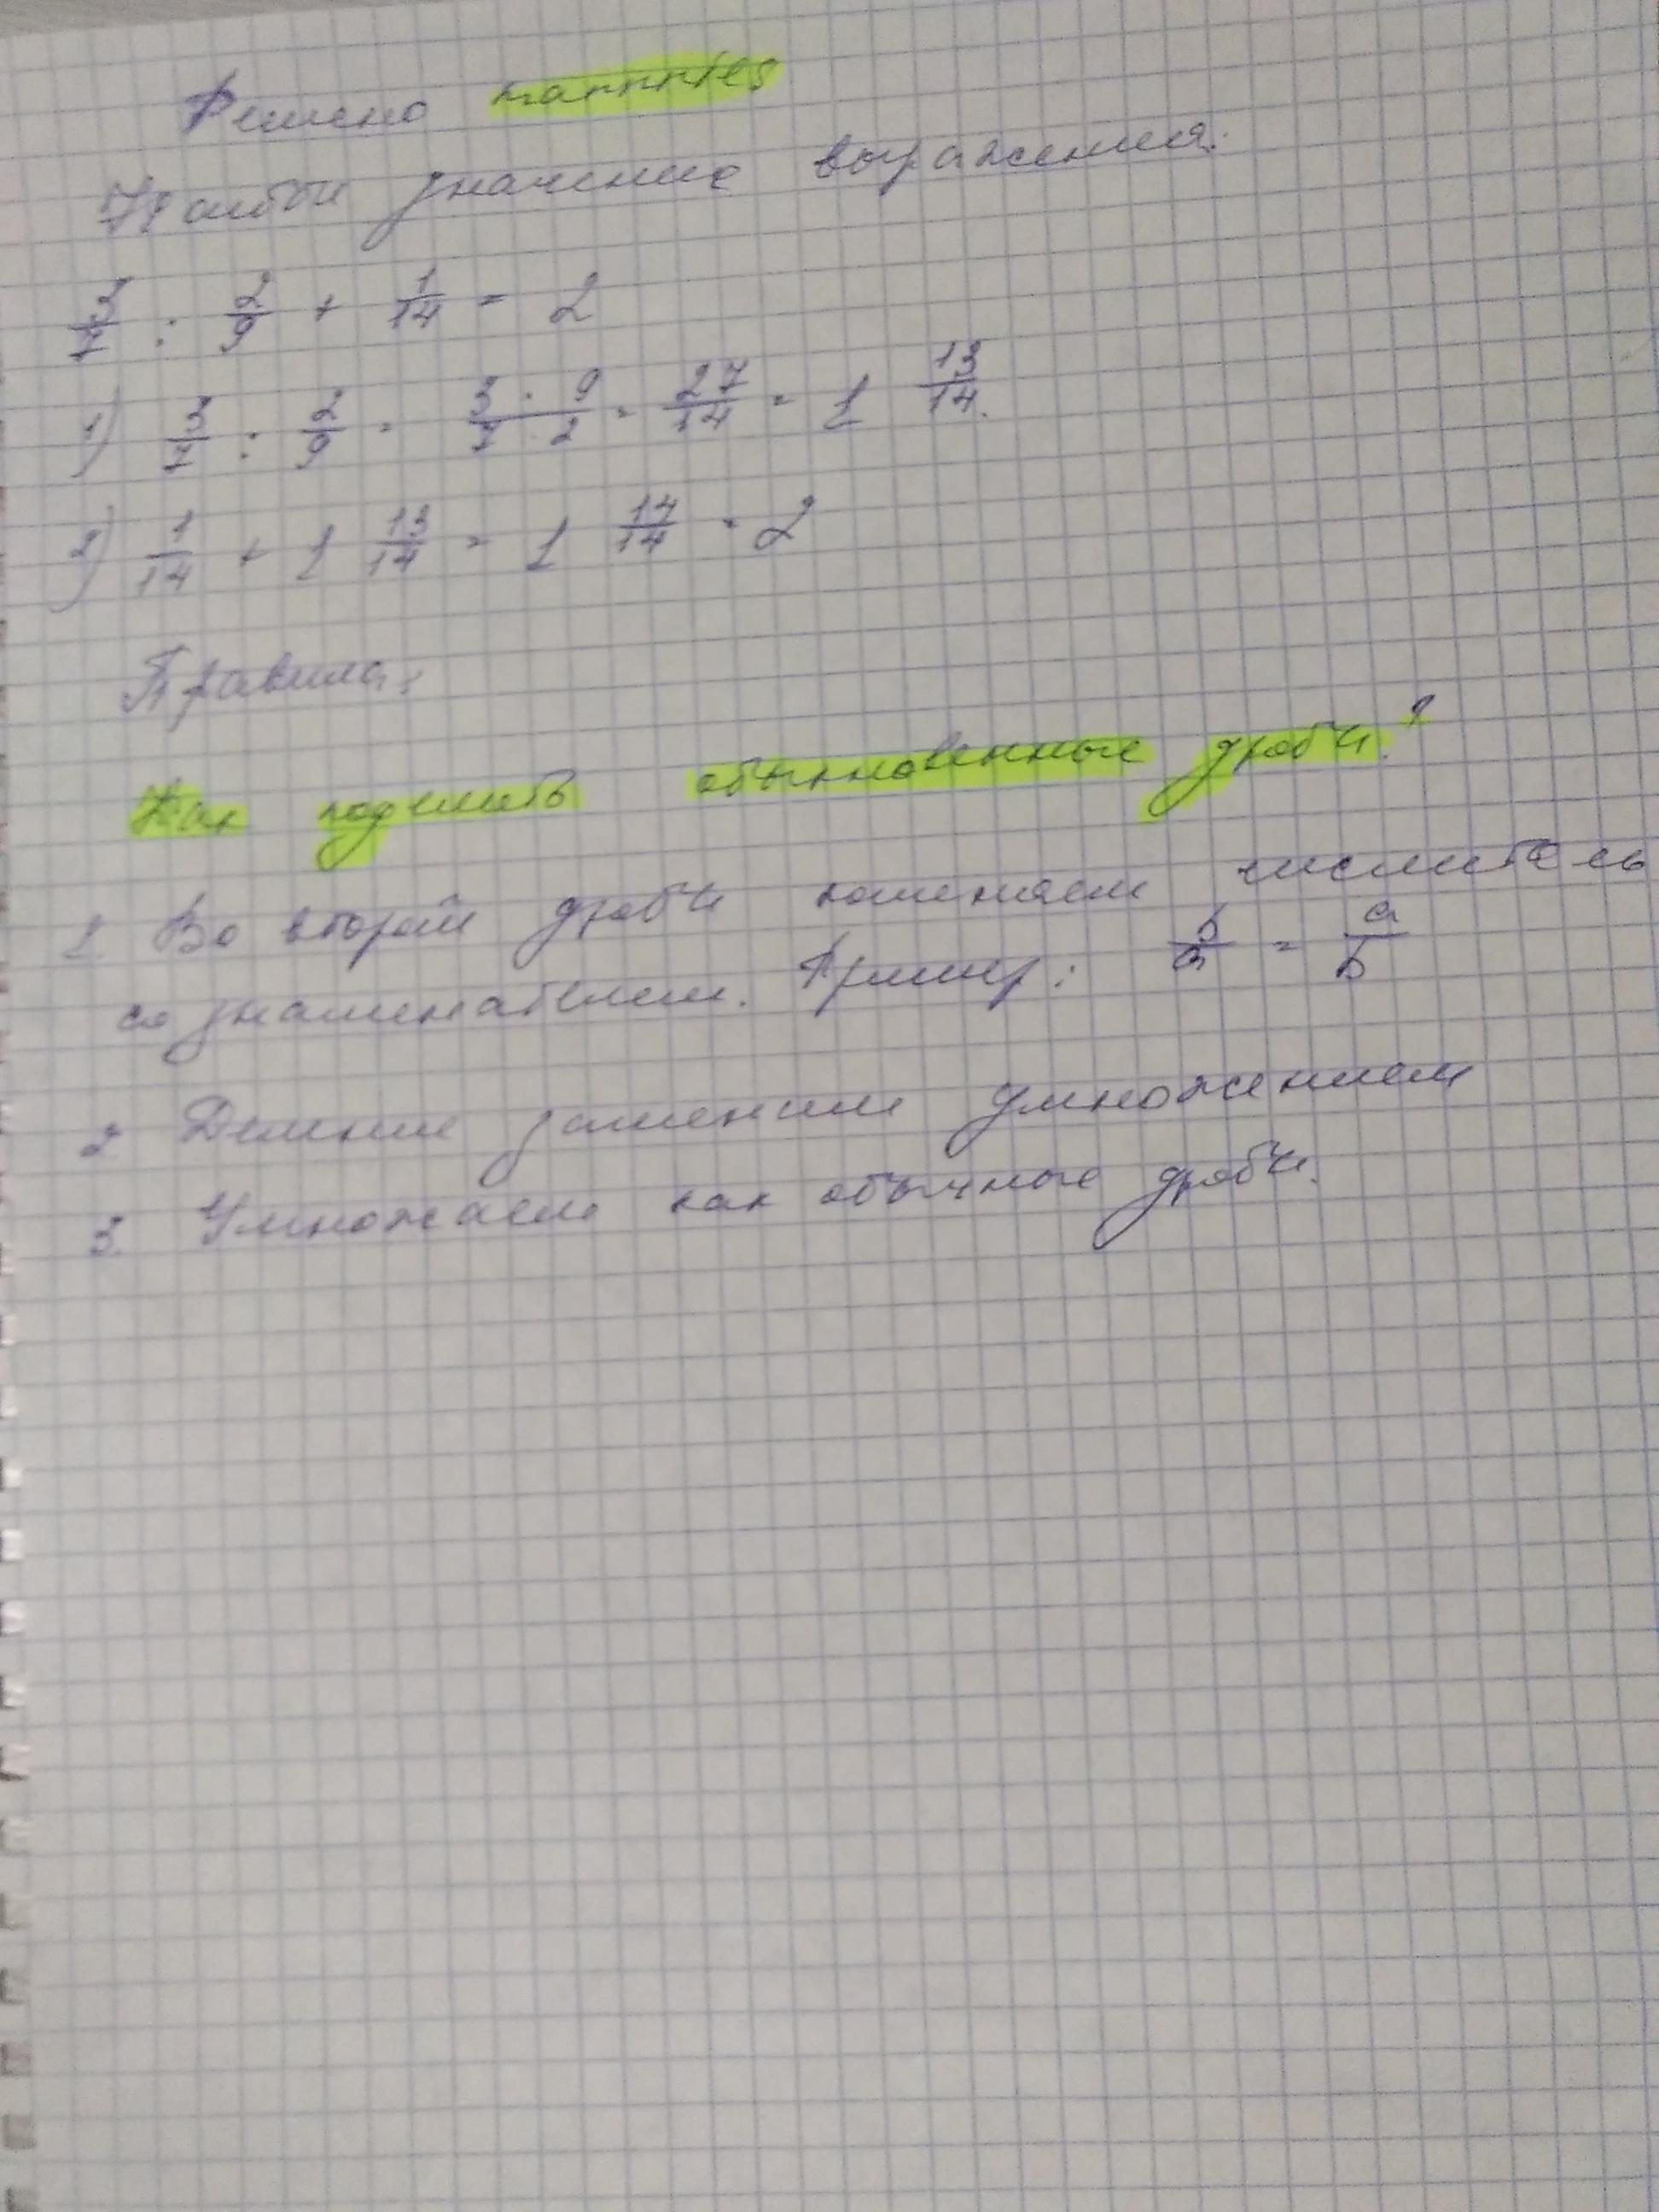 Решено
Найти значение выражения:
3/7 : 2/9 + 1/14 = 2
1) 3/7 : 2/9 = 3 · 9/7 · 2 = 27/14 = 1 13/14.
2) 1/14 + 1 13/14 = 1 14/14 = 2
Правила:
Как поделить обыкновенные дроби?
1. Во второй дроби поменяем числитель
со знаменателем. Пример: b/a = a/b
2. Деление заменим умножением
3. Умножаем как обычные дроби.